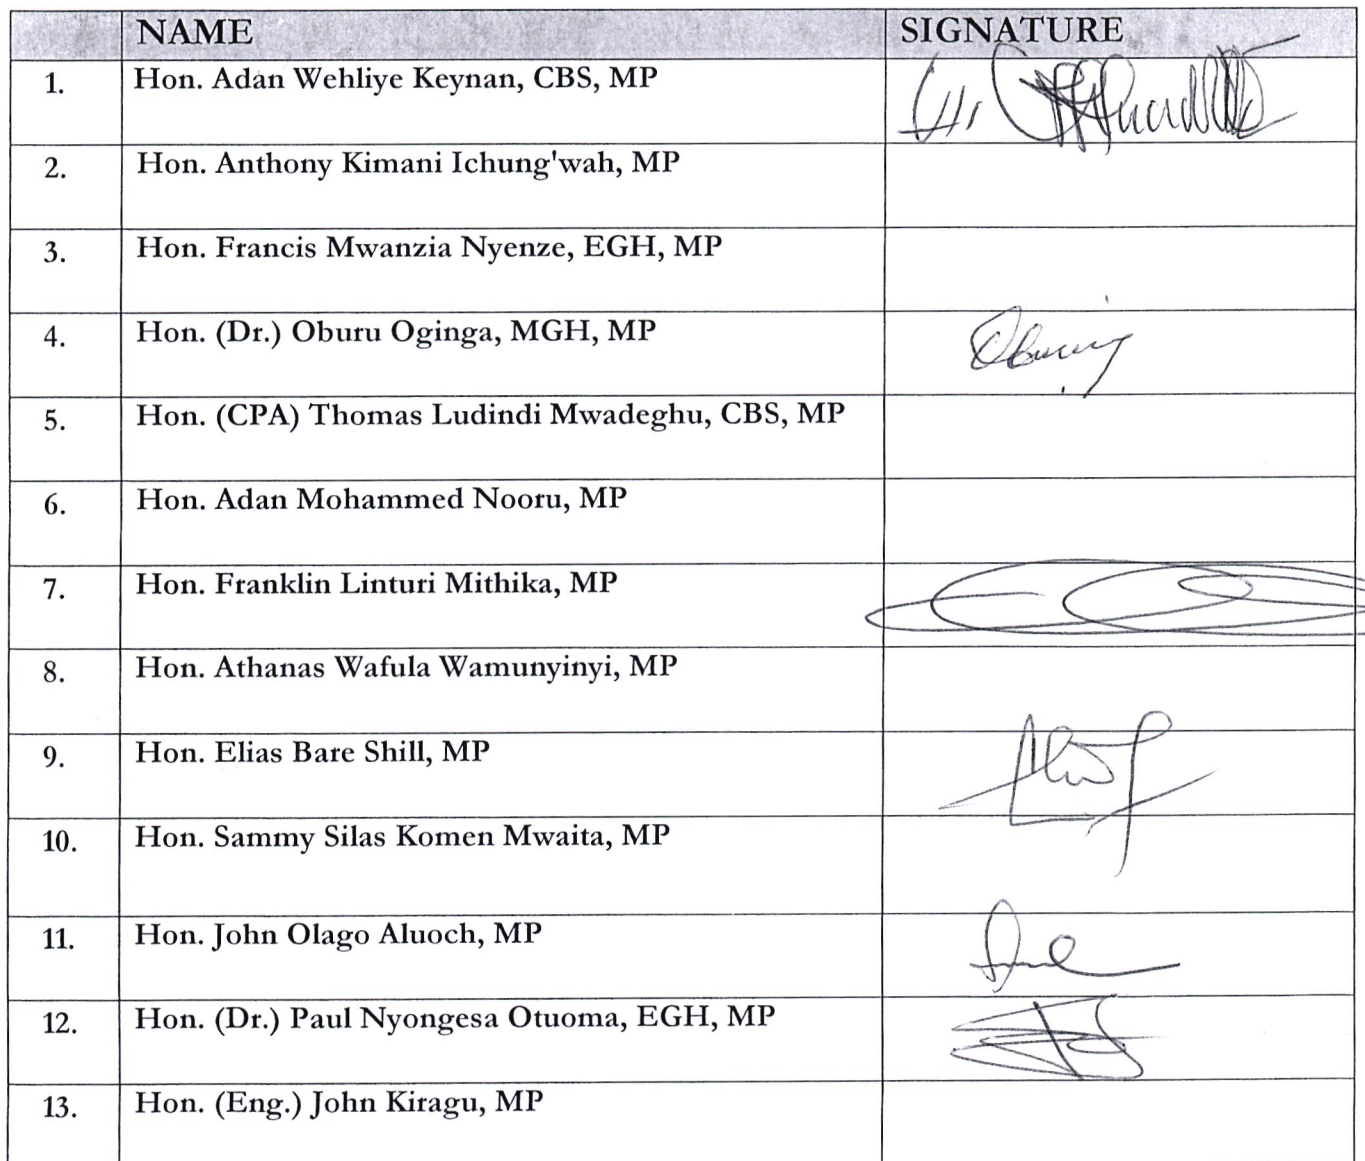 NAME SIGNATURE
1. Hon. Adan Wehliye Keynan, CBS, MP
2. Hon. Anthony Kimani Ichung'wah, MP
3. Hon. Francis Mwanzia Nyenze, EGH, MP
4. Hon. (Dr.) Oburu Oginga, MGH, MP
5. Hon. (CPA) Thomas Ludindi Mwadeghu, CBS, MP
6. Hon. Adan Mohammed Nooru, MP
7. Hon. Franklin Linturi Mithika, MP
8. Hon. Athanas Wafula Wamunyinyi, MP
9. Hon. Elias Bare Shill, MP
10. Hon. Sammy Silas Komen Mwaita, MP
11. Hon. John Olago Aluoch, MP
12. Hon. (Dr.) Paul Nyongesa Otuoma, EGH, MP
13. Hon. (Eng.) John Kiragu, MP